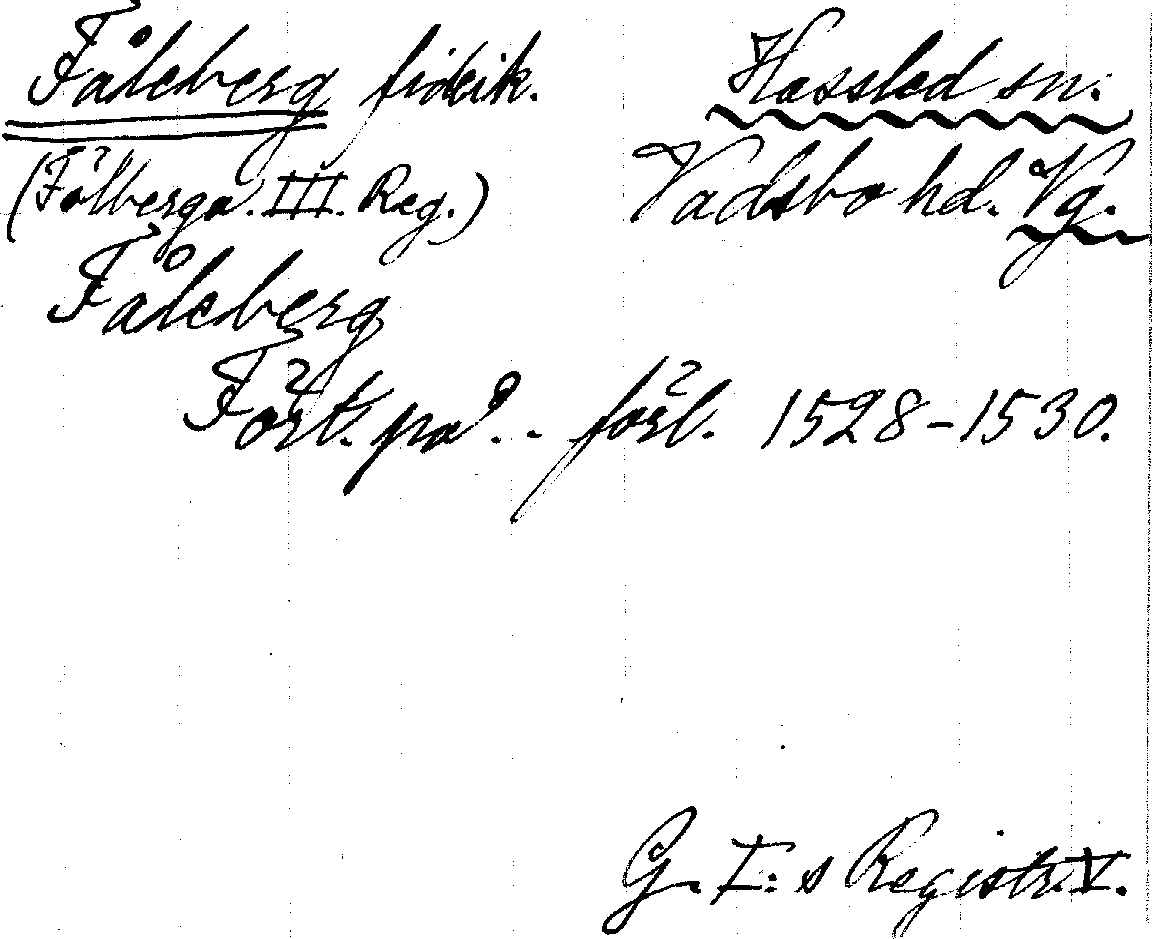 Fåleberg fideik. Hassled sn.
(Fölberga. III. Reg.) Vadsbo hd. Vg.
Fåleberg
Fört. på .. förl. 1528-1530.
G. I:s Registr. V.